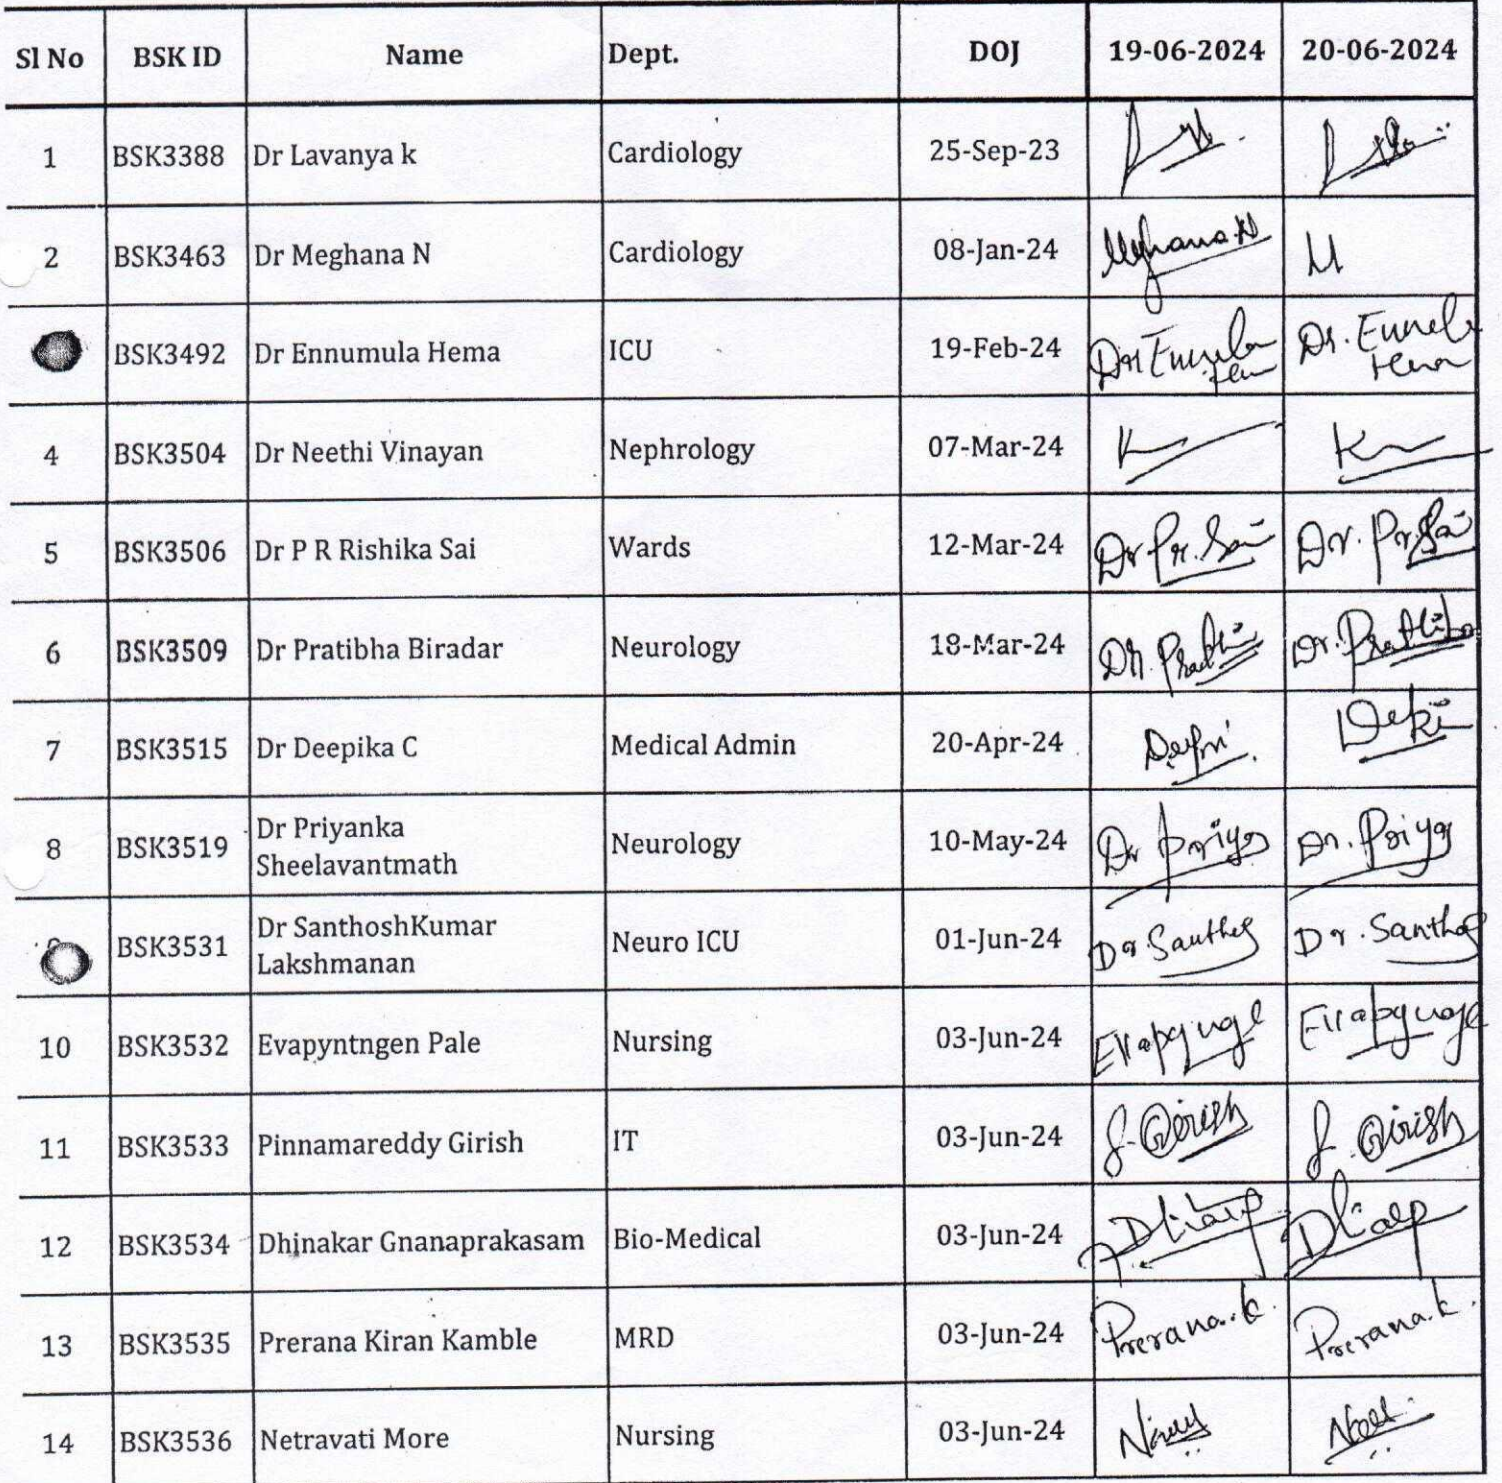 Sl No BSK ID Name Dept. DOJ 19-06-2024 20-06-2024
1 BSK3388 Dr Lavanya k Cardiology 25-Sep-23
2 BSK3463 Dr Meghana N Cardiology 08-Jan-24 Meghana.N M
BSK3492 Dr Ennumula Hema ICU 19-Feb-24 Dr Dr.
4 BSK3504 Dr Neethi Vinayan Nephrology 07-Mar-24
5 BSK3506 Dr P R Rishika Sai Wards 12-Mar-24 Dr Pr. Sai Dr. Pr. Sai
6 BSK3509 Dr Pratibha Biradar Neurology 18-Mar-24 Dr. Dr.
7 BSK3515 Dr Deepika C Medical Admin 20-Apr-24
8 BSK3519 Dr Priyanka
Sheelavantmath Neurology 10-May-24 Dr Priya Dr. Priya
BSK3531 Dr SanthoshKumar
Lakshmanan Neuro ICU 01-Jun-24 Dr. Dr.
10 BSK3532 Evapyntngen Pale Nursing 03-Jun-24
11 BSK3533 Pinnamareddy Girish IT 03-Jun-24 Girish Girish
12 BSK3534 Dhinakar Gnanaprakasam Bio-Medical 03-Jun-24
13 BSK3535 Prerana Kiran Kamble MRD 03-Jun-24 Prerana.k. Prerana.k.
14 BSK3536 Netravati More Nursing 03-Jun-24